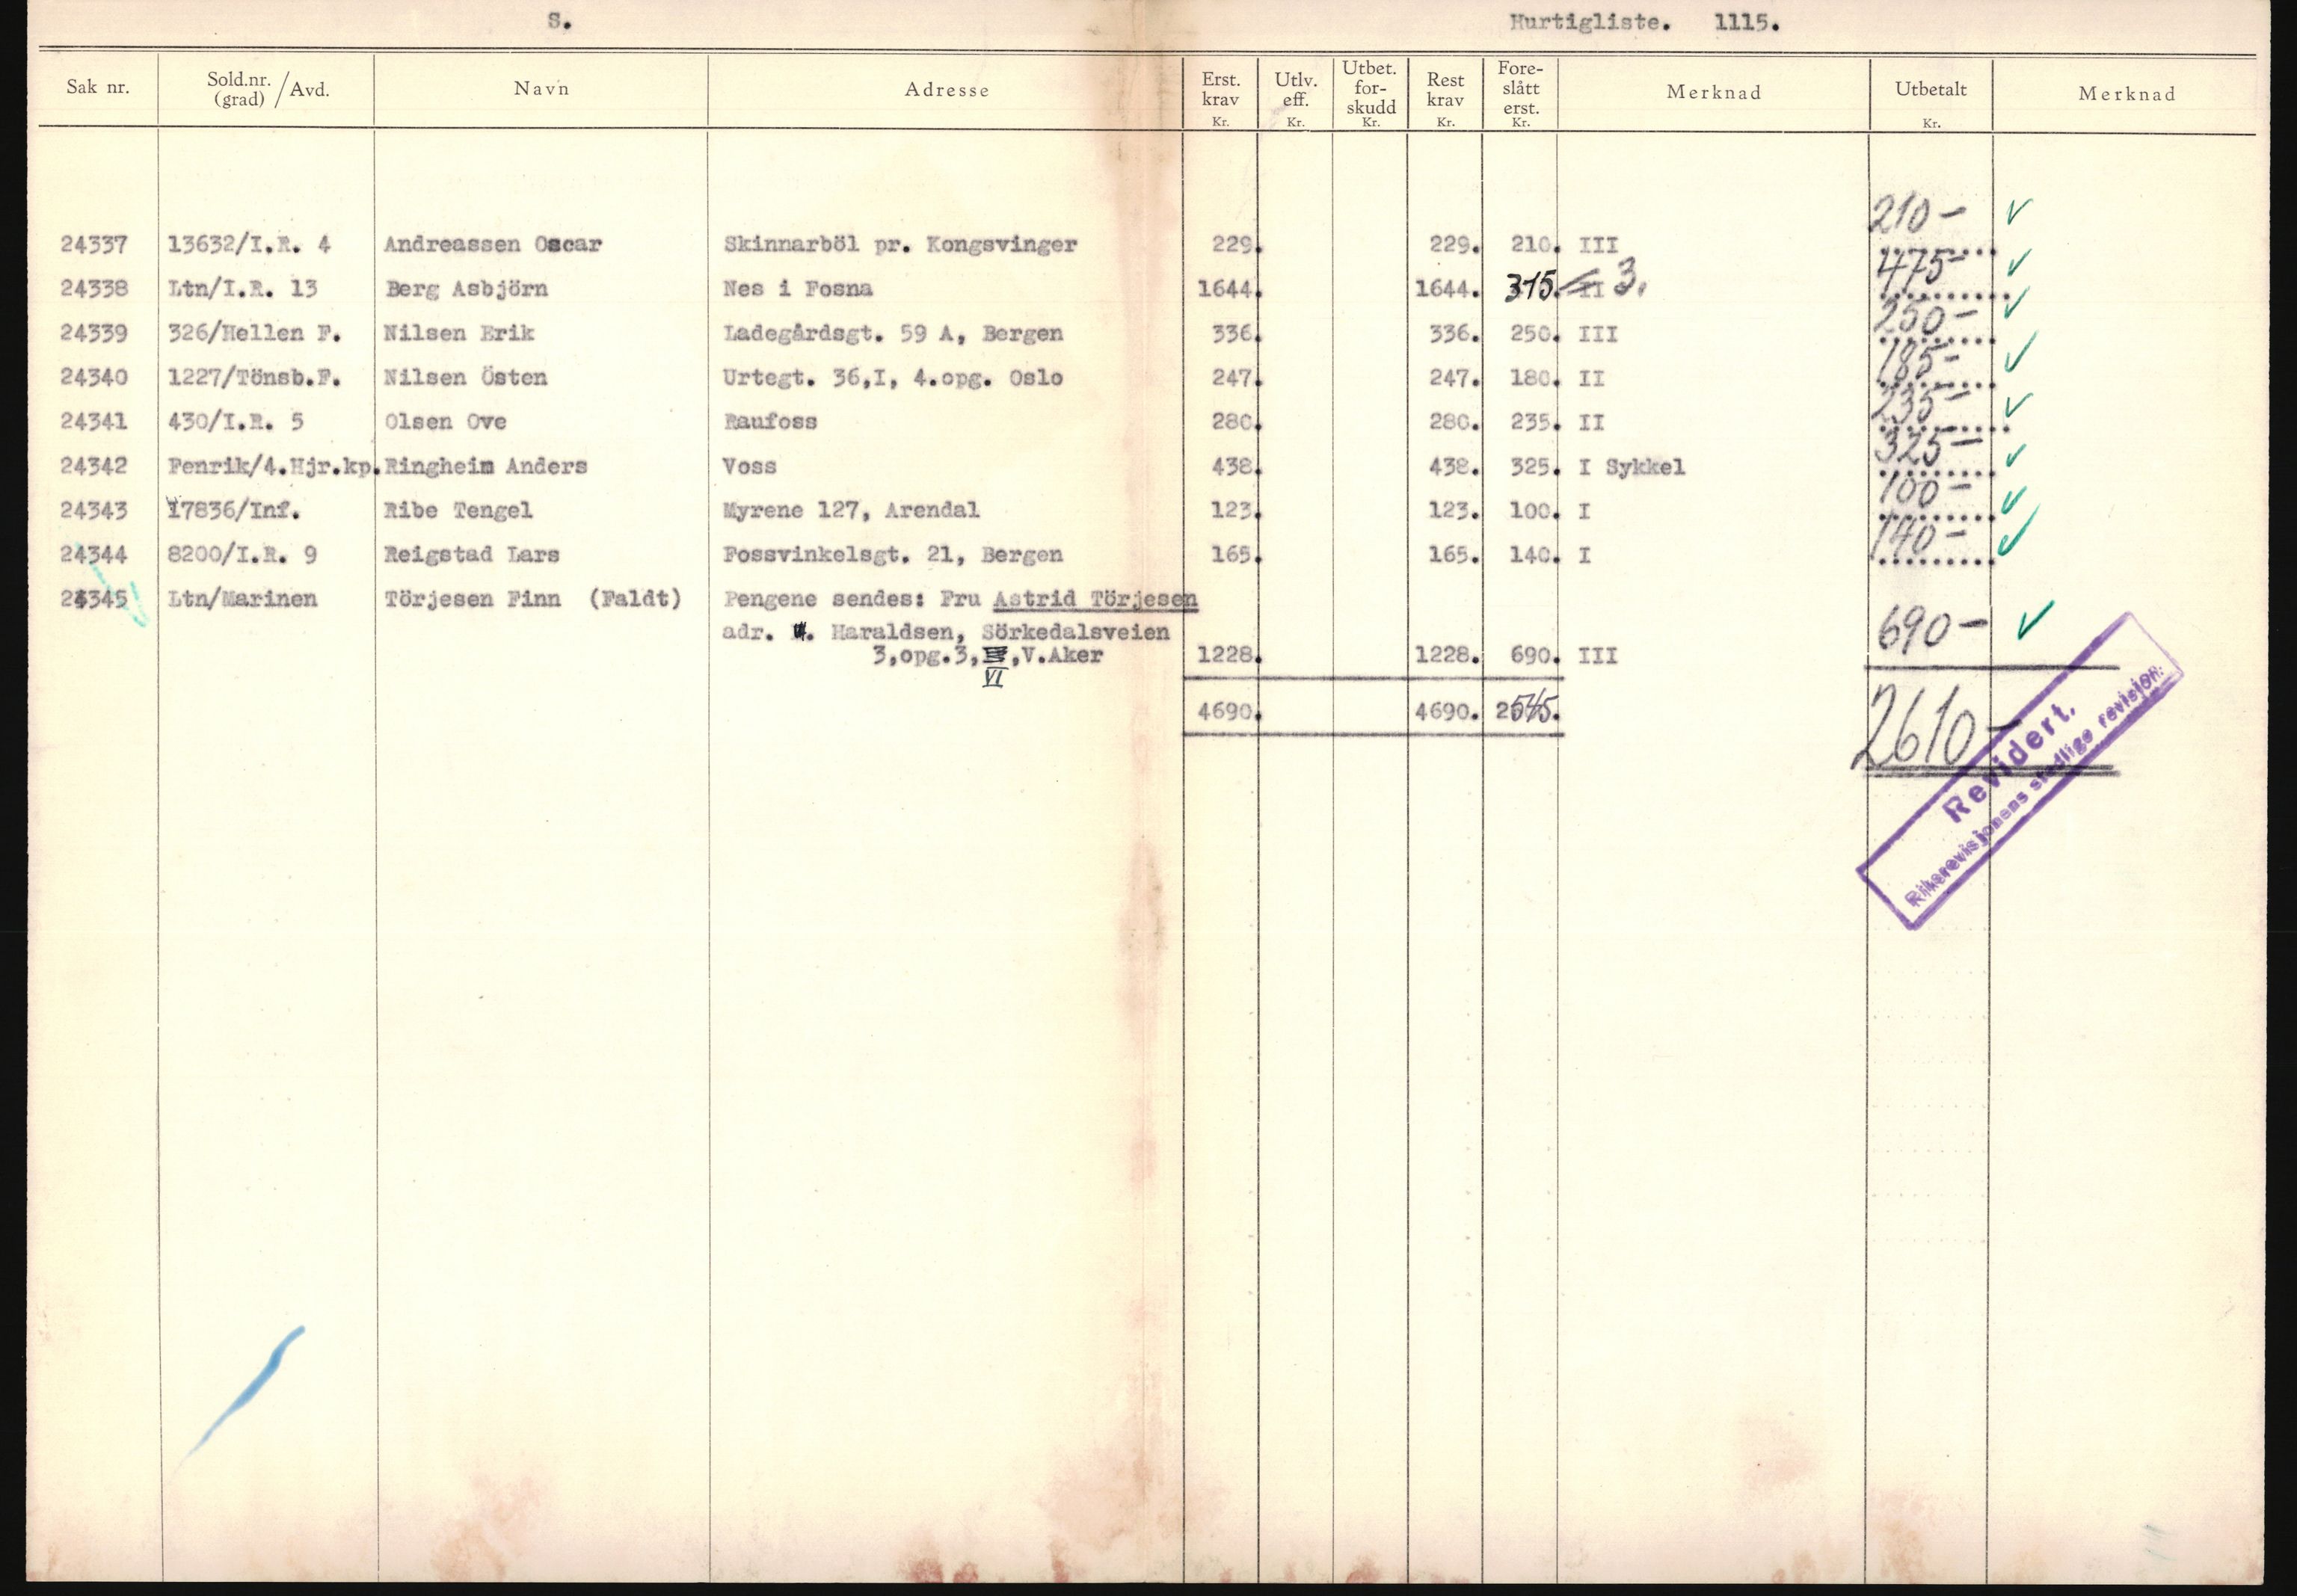 S. Hurtigliste. 1115.
Sak nr. Sold.nr. (grad) / Avd. Navn Adresse Erst. krav Kr. Utlv. eff. Kr. Utbet. for- skudd Kr. Rest krav Kr. Fore- slått erst. Kr. Merknad Utbetalt Kr. Merknad
24337 13632/I.R. 4 Andreassen Oscar Skinnarböl pr. Kongsvinger 229. 229. 210. III 210-
24338 Ltn/I.R. 13 Berg Asbjörn Nes i Fosna 1644. 1644. II 3. 475-
24339 326/Hellen F. Nilsen Erik Ladegårdsgt. 59 A, Bergen 336. 336. 250. III 250-
24340 1227/Tönsb.F. Nilsen Östen Urtegt. 36,I, 4.opg. Oslo 247. 247. 180. II 185-
24341 430/I.R. 5 Olsen Ove Raufoss 280. 280. 235. II 235-
24342 Fenrik/4.Hjr.kp. Ringheim Anders Voss 438. 438. 325. I Sykkel 325-
24343 17836/Inf. Ribe Tengel Myrene 127, Arendal 123. 123. 100. I 100-
24344 8200/I.R. 9 Reigstad Lars Fossvinkelsgt. 21, Bergen 165. 165. 140. I 140-
24345 Ltn/Marinen Törjesen Finn (Faldt) Pengene sendes: Fru Astrid Törjesen
adr. Haraldsen, Sörkedalsveien
3,opg.3, VI ,V.Aker 1228. 1228. 690. III 690-
4690. 4690. 2545. 2610-
Revidert.
Riksrevisjonens stedlige revisjon.